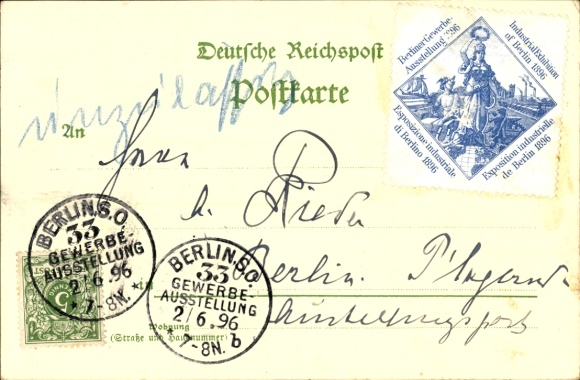 Deutsche Reichspost
Postkarte
unzulässig
An
Herrn
h. Rieder
in Berlin.
Ausstellungspost
Wohnung
(Straße und Hausnummer)
Berliner Gewerbe-
Ausstellung 1896
Industrial Exhibition
of Berlin 1896
Esposizione industriale
di Berlino 1896
Exposition industrielle
de Berlin 1896
BERLIN.S.O.
33
GEWERBE-
AUSSTELLUNG
2/6.96
* 7-8N. *
5
BERLIN.S.O.
33
GEWERBE-
AUSSTELLUNG
2/6.96
* 7-8N. b